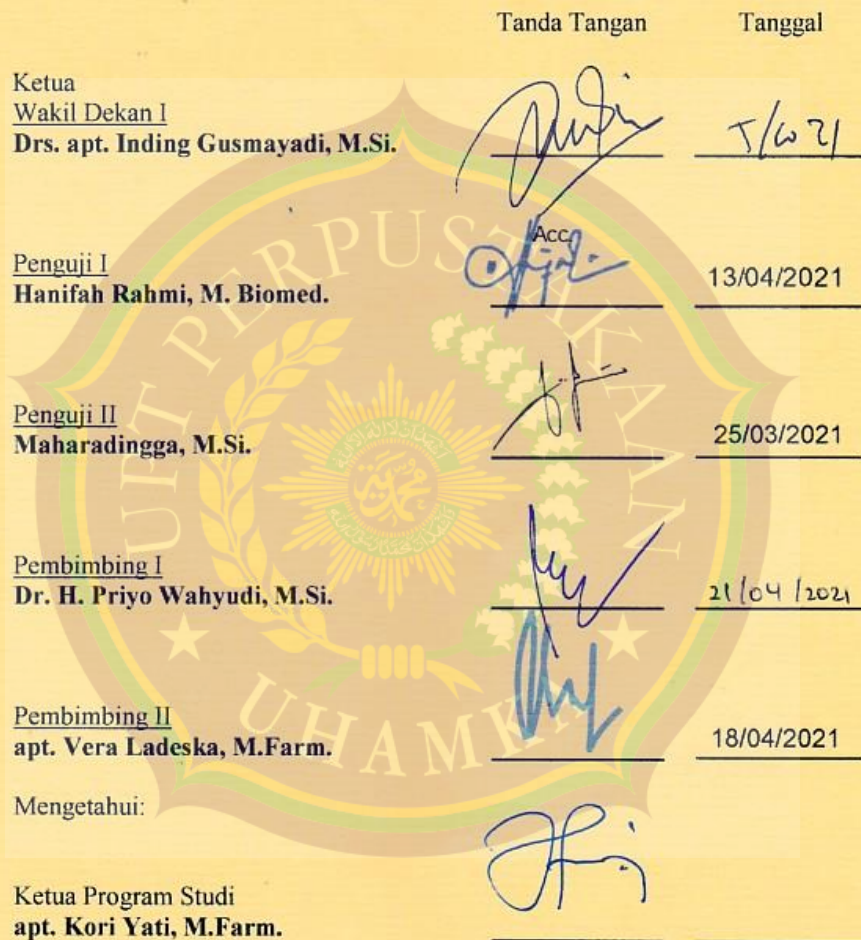 Tanda Tangan Tanggal
Ketua
Wakil Dekan I
Drs. apt. Inding Gusmayadi, M.Si.
Acc.
Penguji I
Hanifah Rahmi, M. Biomed.
13/04/2021
Penguji II
Maharadingga, M.Si.
25/03/2021
Pembimbing I
Dr. H. Priyo Wahyudi, M.Si.
21/04/2021
Pembimbing II
apt. Vera Ladeska, M.Farm.
18/04/2021
Mengetahui:
Ketua Program Studi
apt. Kori Yati, M.Farm.
UPT PERPUSTAKAAN
UHAMKA